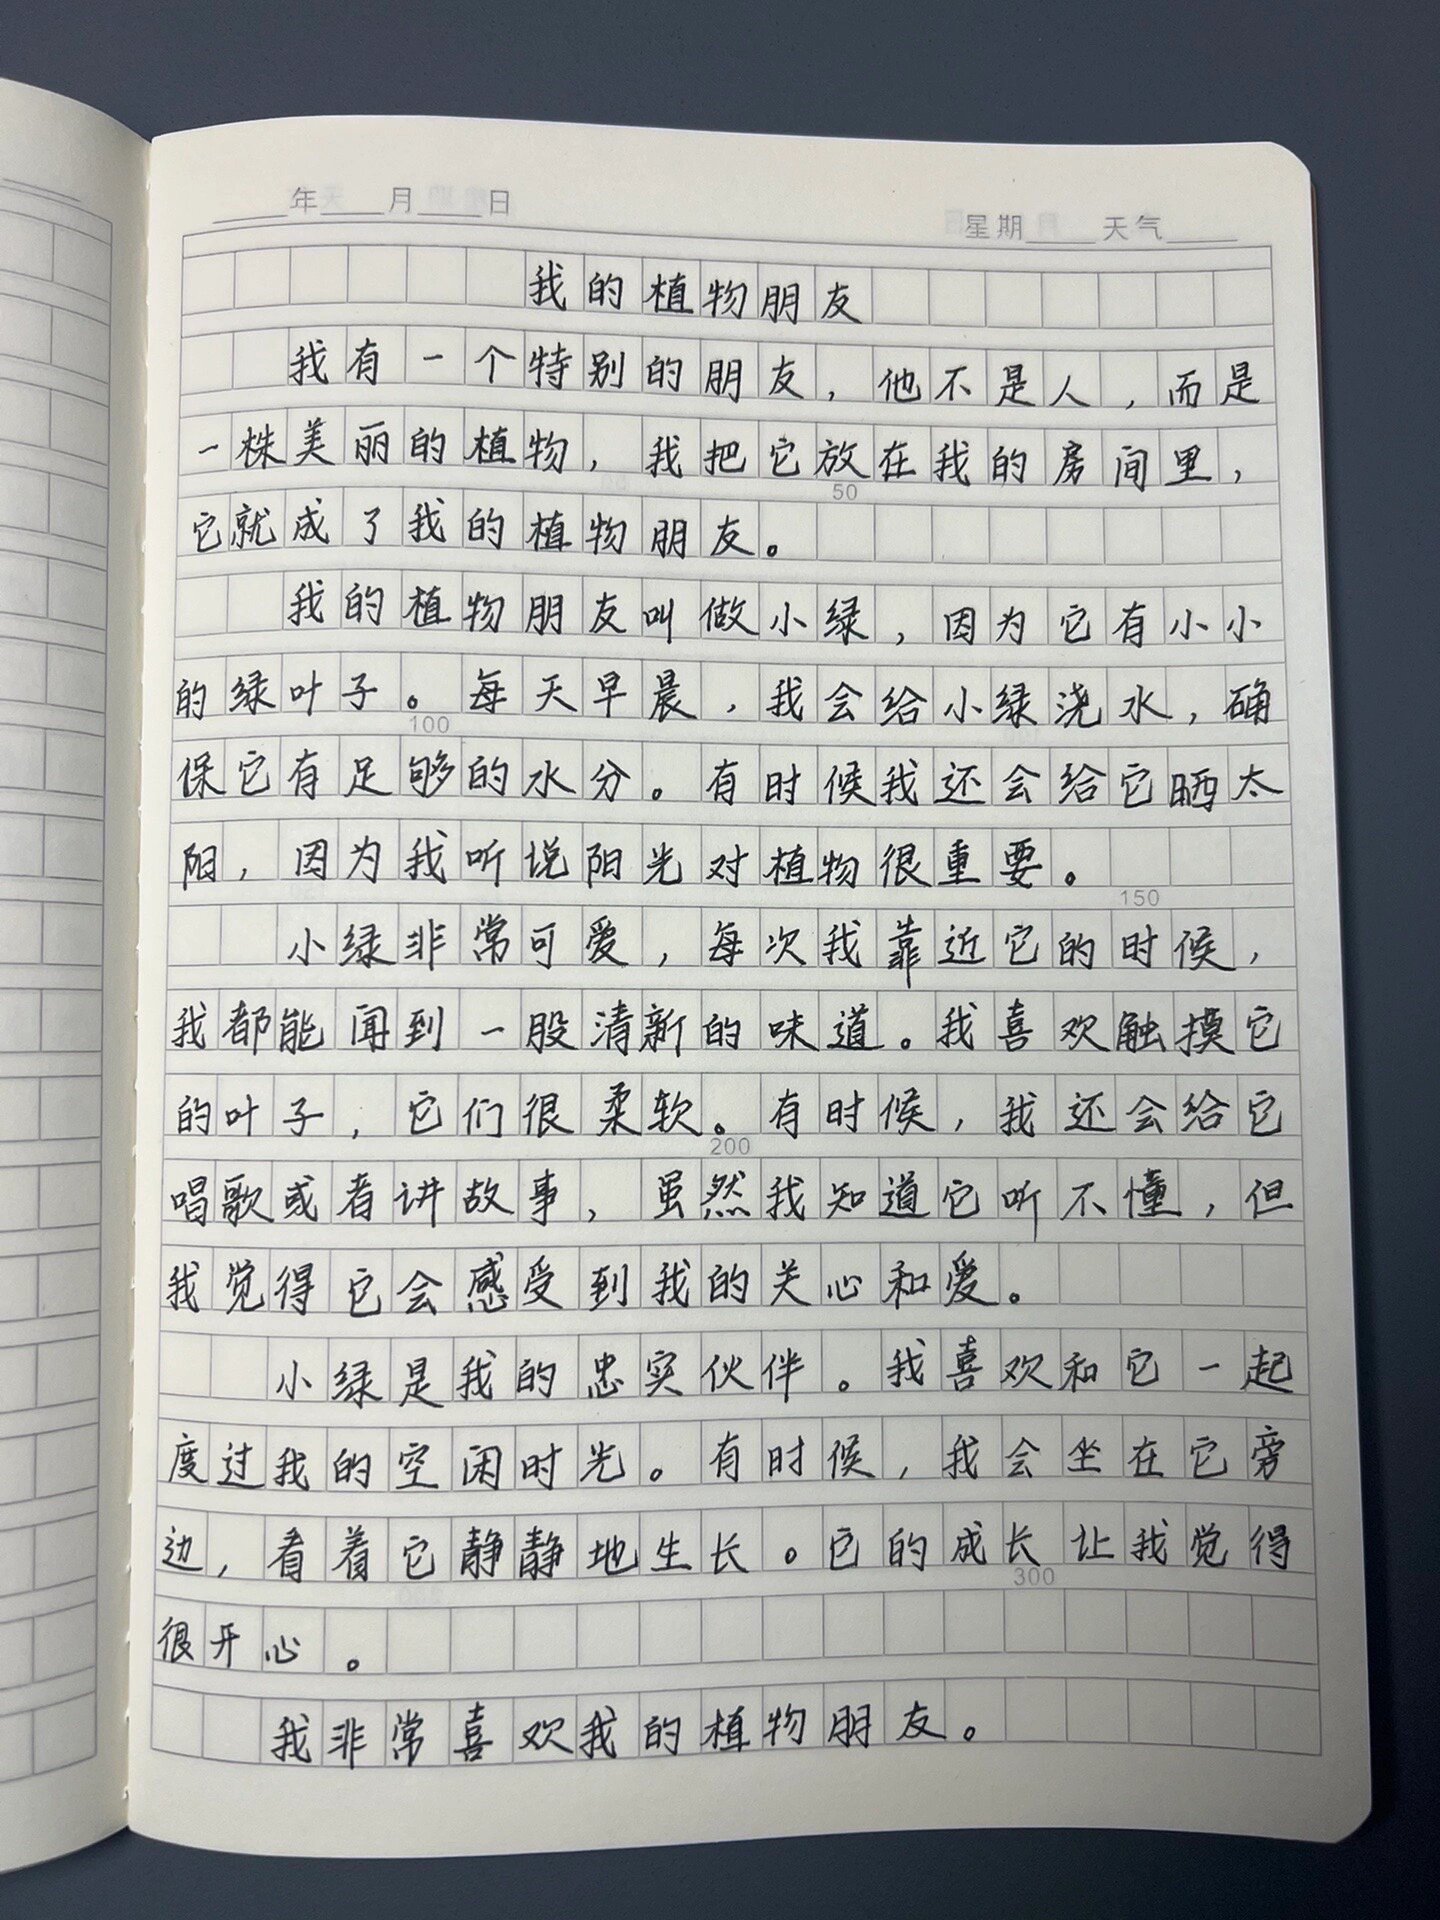 年 月 日 星期 天气
我的植物朋友
我有一个特别的朋友，他不是人，而是
一株美丽的植物，我把它放在我的房间里，
50
它就成了我的植物朋友。
我的植物朋友叫做小绿，因为它有小小
的绿叶子。每天早晨，我会给小绿浇水，确
100
保它有足够的水分。有时候我还会给它晒太
阳，因为我听说阳光对植物很重要。
150
小绿非常可爱，每次我靠近它的时候，
我都能闻到一股清新的味道。我喜欢触摸它
的叶子，它们很柔软。有时候，我还会给它
200
唱歌或者讲故事，虽然我知道它听不懂，但
我觉得它会感受到我的关心和爱。
小绿是我的忠实伙伴。我喜欢和它一起
度过我的空闲时光。有时候，我会坐在它旁
边，看着它静静地生长。它的成长让我觉得
300
很开心。
我非常喜欢我的植物朋友。